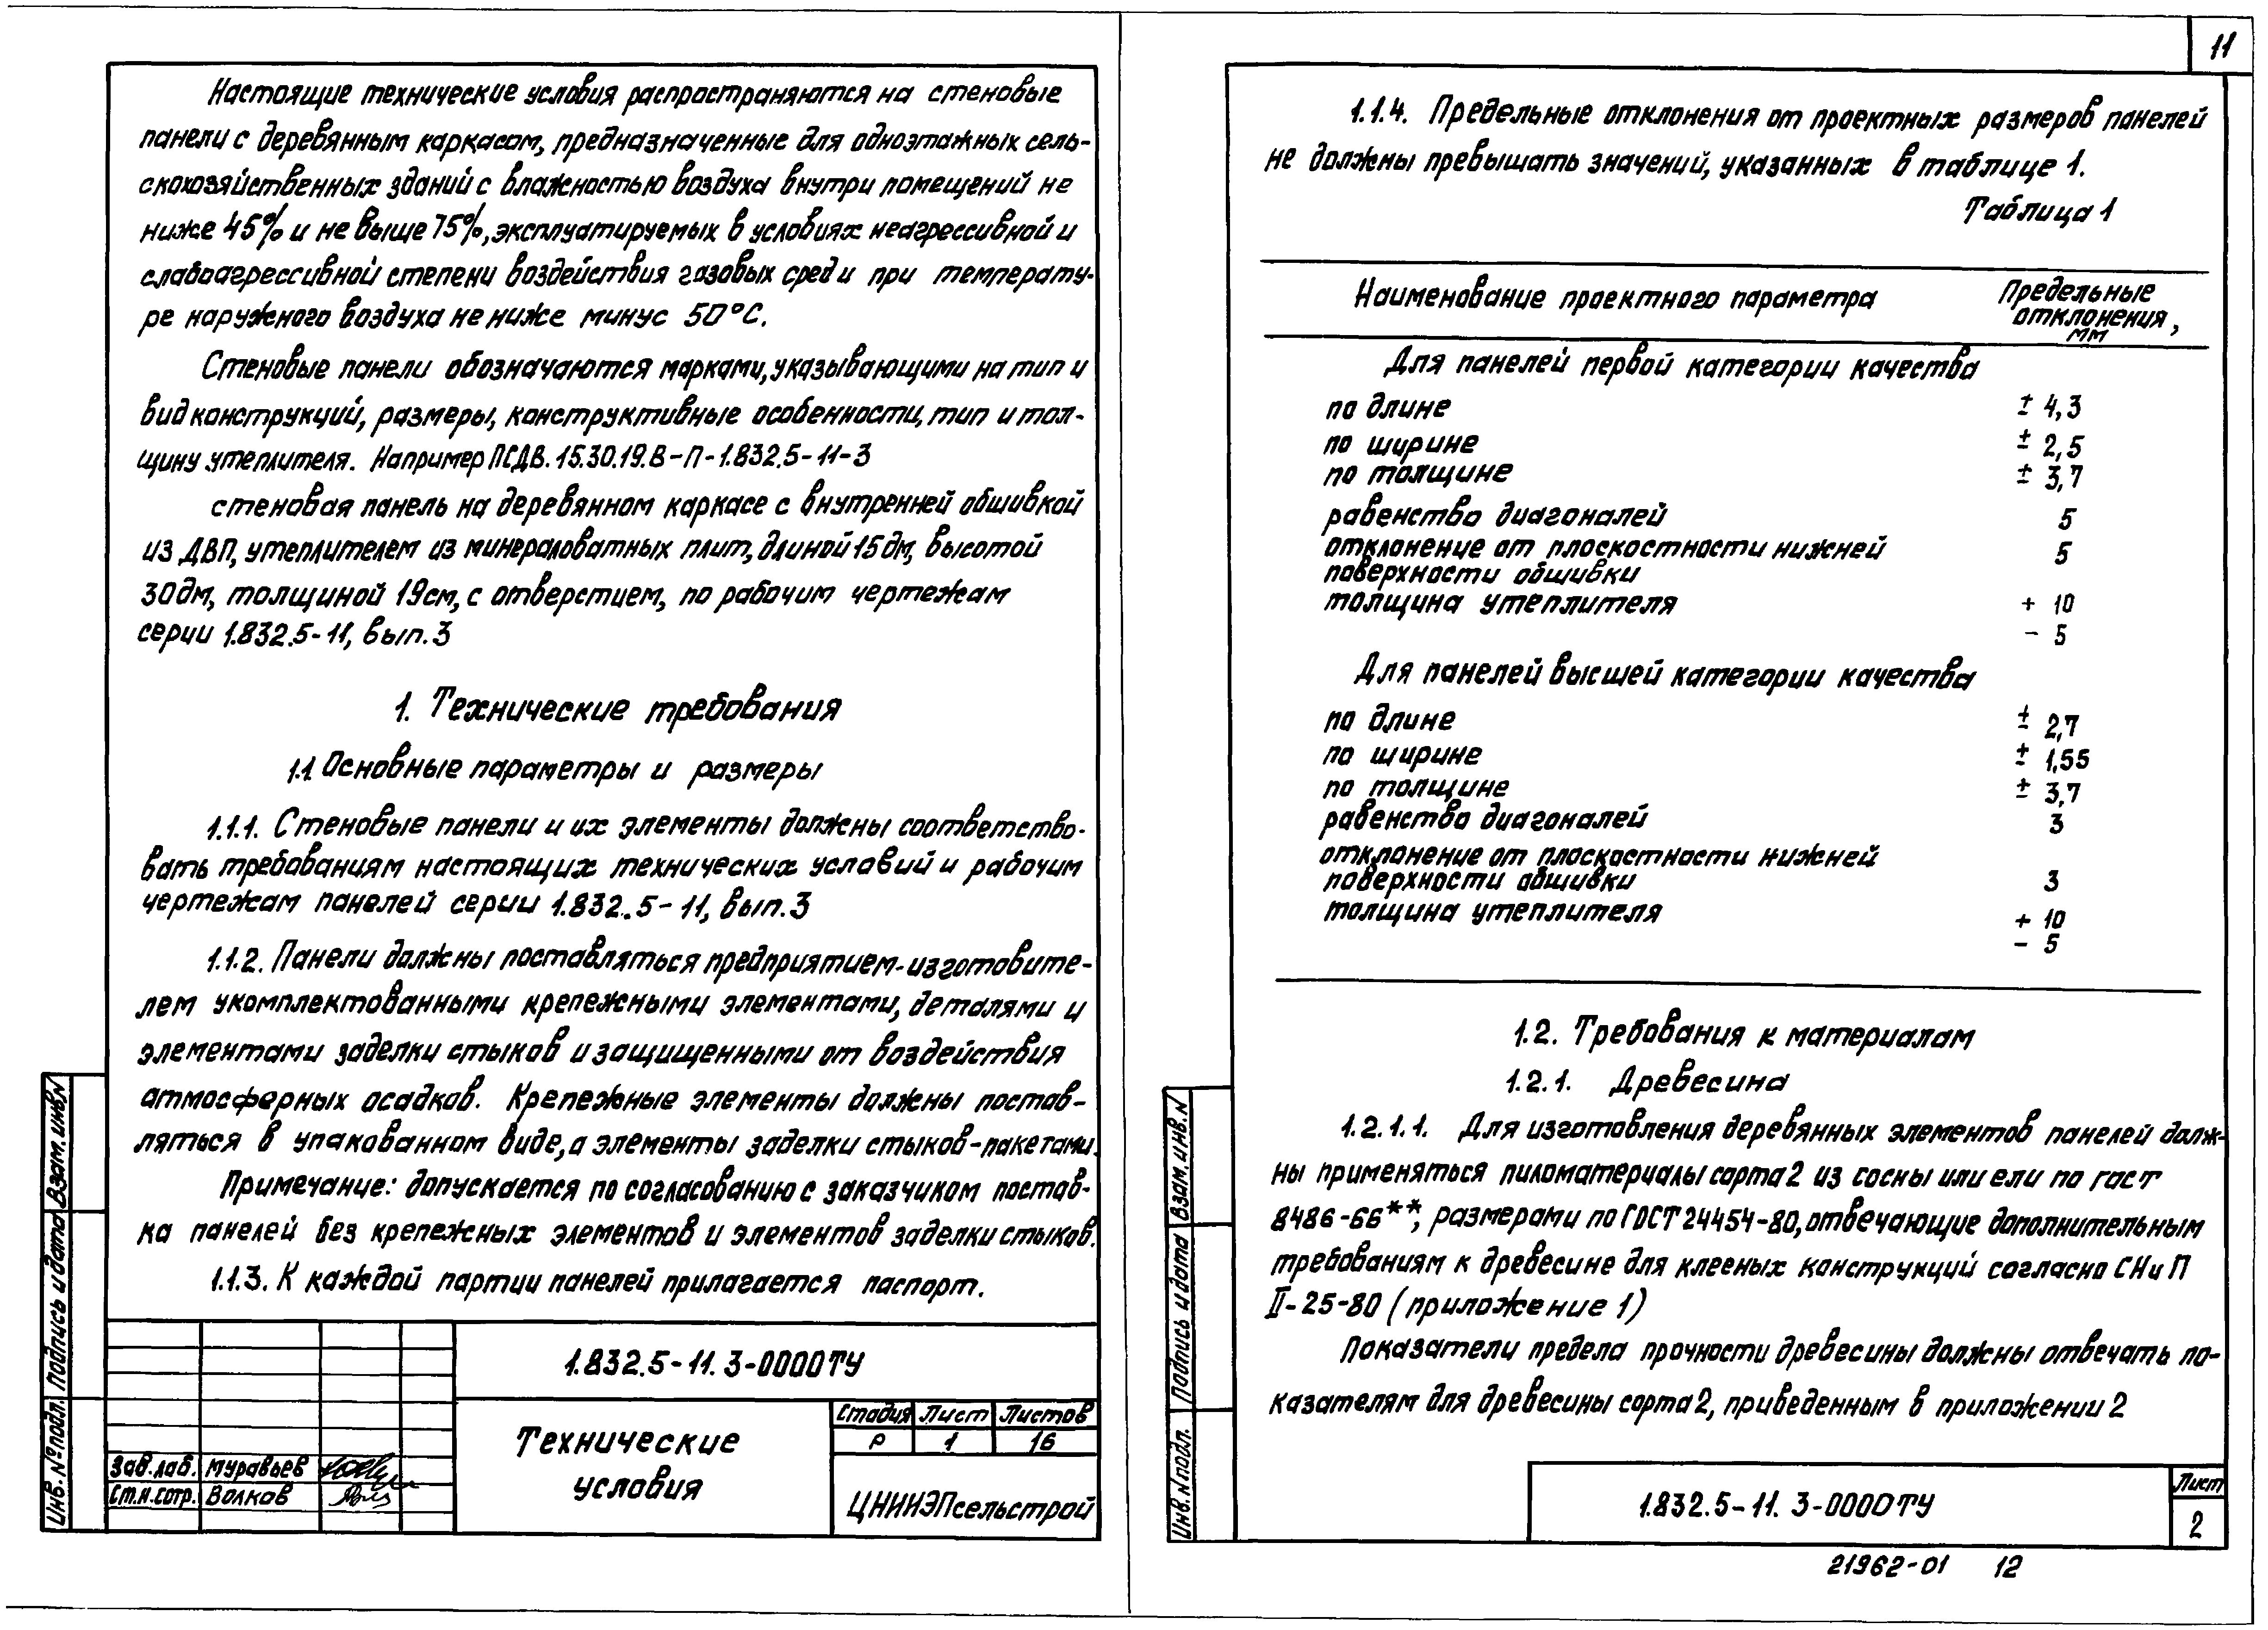 Настоящие технические условия распространяются на стеновые
панели с деревянным каркасом, предназначенные для одноэтажных сель-
скохозяйственных зданий с влажностью воздуха внутри помещений не
ниже 45% и не выше 75%, эксплуатируемых в условиях неагрессивной и
слабоагрессивной степени воздействия газовых сред и при температу-
ре наружного воздуха не ниже минус 50°С.
Стеновые панели обозначаются марками, указывающими на тип и
вид конструкций, размеры, конструктивные особенности, тип и тол-
щину утеплителя. Например ПСДВ.15.30.19.В-П-1.832.5-11-3
стеновая панель на деревянном каркасе с внутренней обшивкой
из ДВП, утеплителем из минераловатных плит, длиной 15 дм, высотой
30 дм, толщиной 19 см, с отверстием, по рабочим чертежам
серии 1.832.5-11, вып. 3
1. Технические требования
1.1 Основные параметры и размеры
1.1.1. Стеновые панели и их элементы должны соответство-
вать требованиям настоящих технических условий и рабочим
чертежам панелей серии 1.832.5-11, вып. 3
1.1.2. Панели должны поставляться предприятием-изготовите-
лем укомплектованными крепежными элементами, деталями и
элементами заделки стыков и защищенными от воздействия
атмосферных осадков. Крепежные элементы должны постав-
ляться в упакованном виде, а элементы заделки стыков-пакетами.
Примечание: допускается по согласованию с заказчиком постав-
ка панелей без крепежных элементов и элементов заделки стыков.
1.1.3. К каждой партии панелей прилагается паспорт.
1.832.5-11. 3-0000ТУ
Технические
условия
Стадия Лист Листов
Р 1 16
Зав.лаб. Муравьев
Ст.н.сотр. Волков
ЦНИИЭПсельстрой
Инв. № подл. Подпись и дата Взам. инв. N
11
1.1.4. Предельные отклонения от проектных размеров панелей
не должны превышать значений, указанных в таблице 1.
Таблица 1
Наименование проектного параметра Предельные
отклонения,
мм
Для панелей первой категории качества
по длине ± 4,3
по ширине ± 2,5
по толщине ± 3,7
равенство диагоналей 5
отклонение от плоскостности нижней 5
поверхности обшивки
толщина утеплителя + 10
- 5
Для панелей высшей категории качества
по длине ± 2,7
по ширине ± 1,55
по толщине ± 3,7
равенство диагоналей 3
отклонение от плоскостности нижней
поверхности обшивки 3
толщина утеплителя + 10
- 5
1.2. Требования к материалам
1.2.1. Древесина
1.2.1.1. Для изготовления деревянных элементов панелей долж-
ны применяться пиломатериалы сорта 2 из сосны или ели по гост
8486-66**, размерами по ГОСТ 24454-80, отвечающие дополнительным
требованиям к древесине для клееных конструкций согласно СНиП
II-25-80 (приложение 1)
Показатели предела прочности древесины должны отвечать по-
казателям для древесины сорта 2, приведенным в приложении 2
1.832.5-11. 3-0000ТУ
Лист
2
Инв. N подл. Подпись и дата Взам. инв. N
21962-01 12